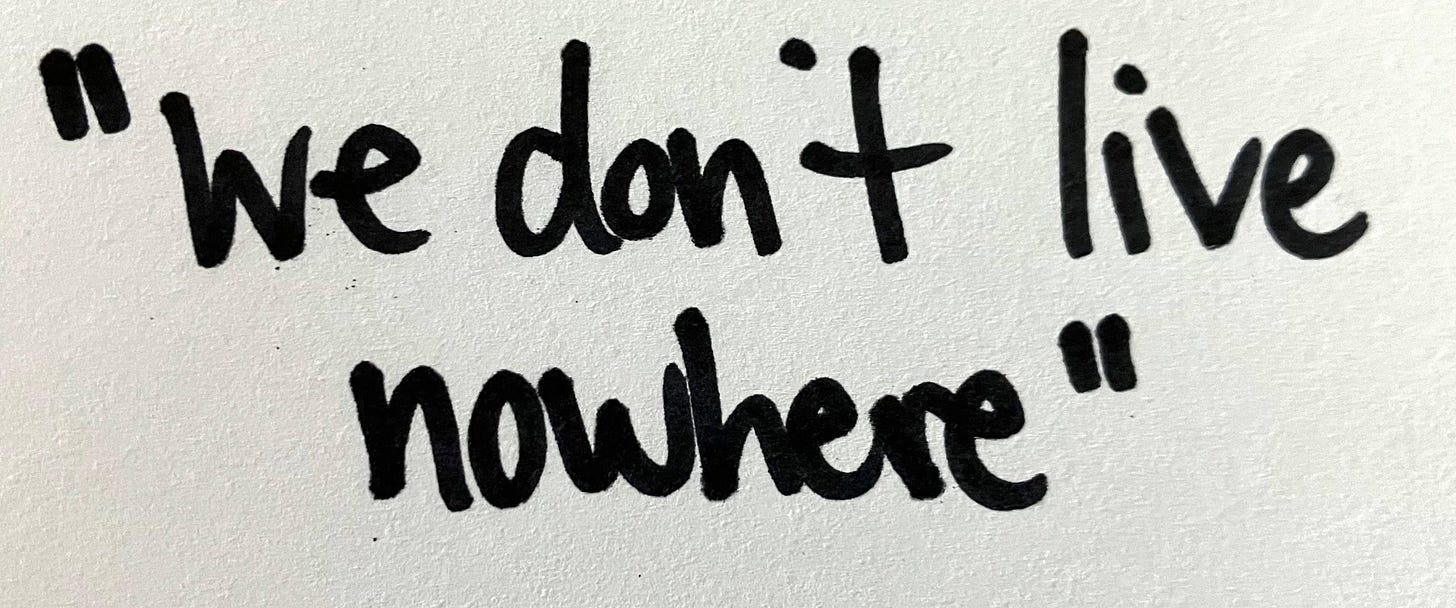 "we don't live
nowhere"